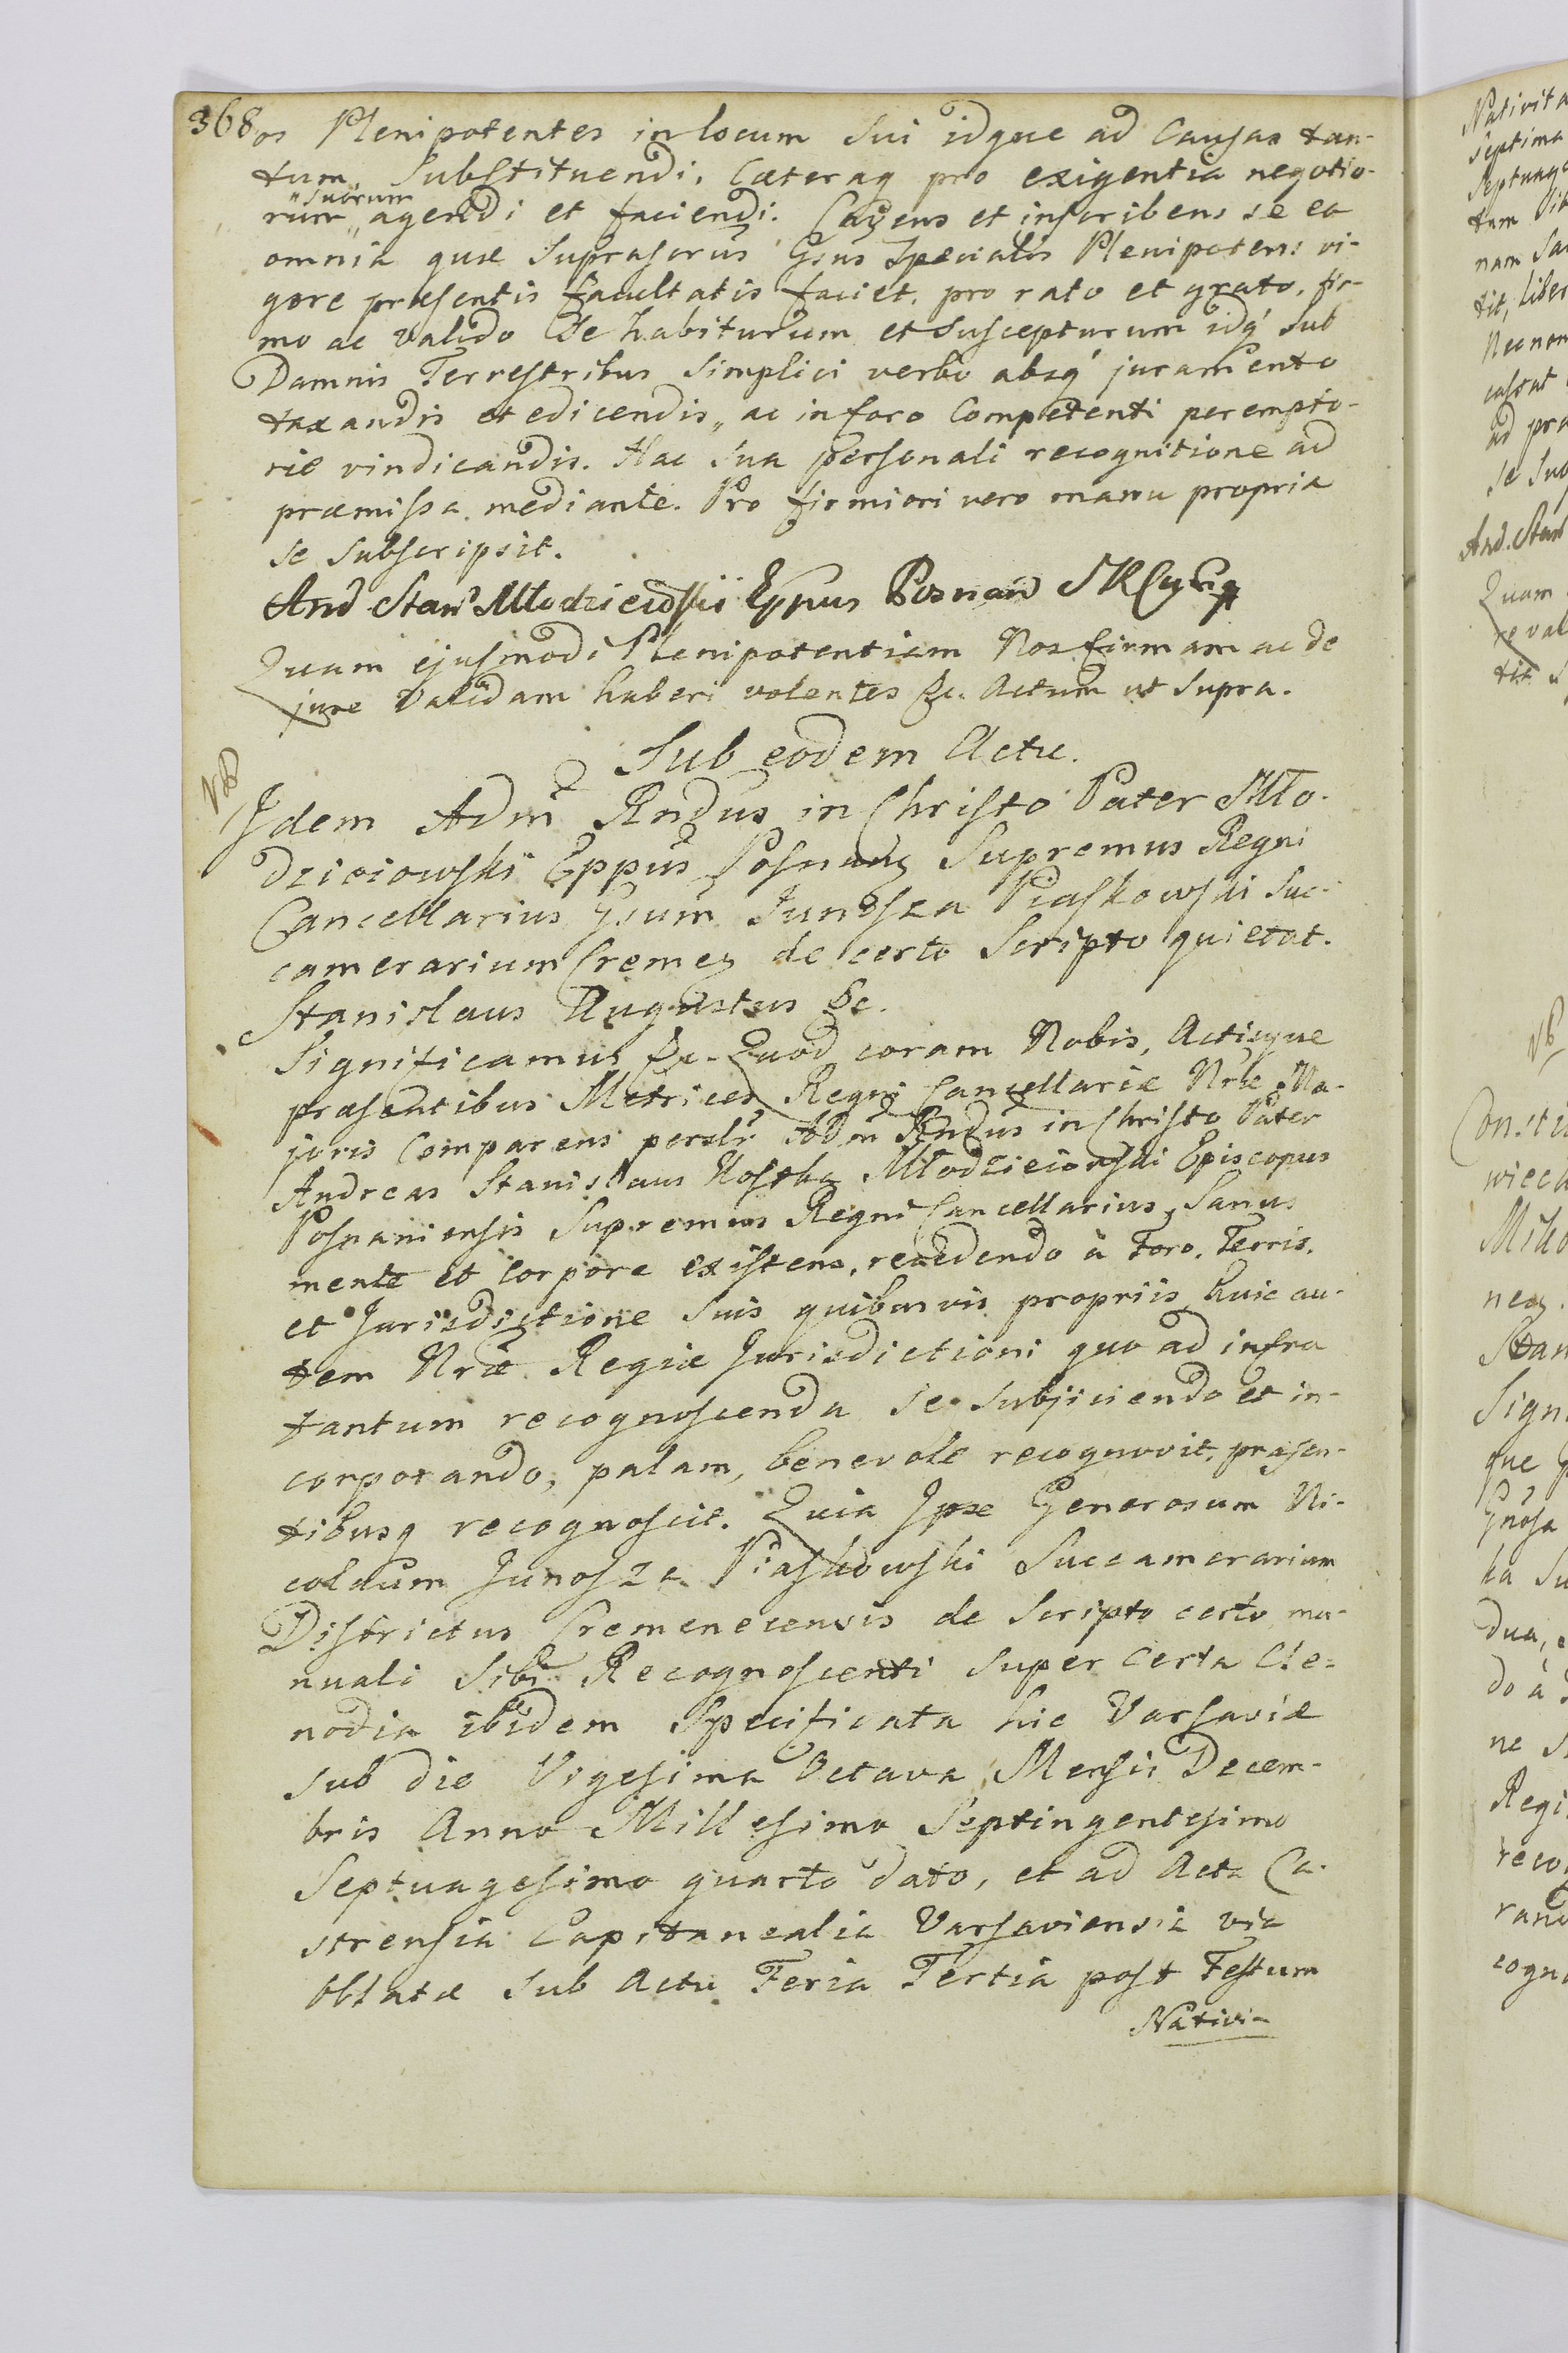 368
os Plenipotentes in locum sui idque ad Causas tan-
tum Substituendi. Cæteraq pro exigentia negotio-
rum „suorum„ agendi et faciendi. Cavens et inscribens se ea
omnia quæ Suprascrus Gsus Specialis Plenipotens vi-
gore præsentis facultatis faciet, pro rato et grato, fir-
mo ac valido se habiturum et suscepturum idq' sub
Damnis Terrestribus simplici verbo absq' juramento
taxandis et edicendis„ ac in foro Competenti perempto-
rie vindicandis. Hac sua personali recognitione ad
præmissa mediante. Pro firmiori vero manu propria
se subscripsit.
And Stan Młodzieiowskii Eppus Posnan
Quam ejusmodi Plenipotentiam Nos firmam ac de
jure validam haberi volentes &c. Actum ut supra.
Sub eodem Actu.
NB
Idem Adm Rndus in Christo Pater Mło-
dzieiowski Eppus Posnan Supremus Regni
Cancellarius Gsum Junosza Piaskowski Suc-
camerarium Cremen de certo Scripto quietat.
Stanislaus Augustus &c.
Significamus &c. Quod coram Nobis, Actisque
præsentibus Metrices Regni Cancellariæ Nræ Ma-
joris Comparens persolr Adm Rndus in Christo Pater
Andreas Stanislaus Kostka Młodzieiowski Episcopus
Posnaniensis Supremus Regni Cancellarius, Sanus
mente et Corpore existens, recedendo à Foro, Terris,
et Jurisdictione suis quibusvis propriis, huic au-
tem Nræ Regiæ Jurisdictioni quo ad infra
tantum recognoscenda se subjiciendo et in-
corporando, palam, benevole recognovit, præsen-
tibusq recognoscit. Quia Ipse Generosum Ni-
colaum Junosza Piaskowski Succamerarium
Districtus Cremenecensis de Scripto certo ma-
nuali Sibi Recognoscenti super Certa Cle-
nodia ibidem Specificata hic Varsaviæ
sub die Vigesima Octava Mensis Decem-
bris Anno Millesimo Septingentesimo
Septuagesimo quarto dato, et ad Acta Ca-
strensia Capitanealia Varsaviensia via
Oblatæ Sub Actu Feria Tertia post Festum
Nativi-
Nativita
septima
Septuage
tum
nam
tit, liber
Necnon
cassat
ad pra
se
And. Stan
Quam
re val
tit
Consti
wieck
Miko
Stan
Sign
que
Gnosa
ka Su
dua,
do à
ne
Regi
reco
rand
cogn